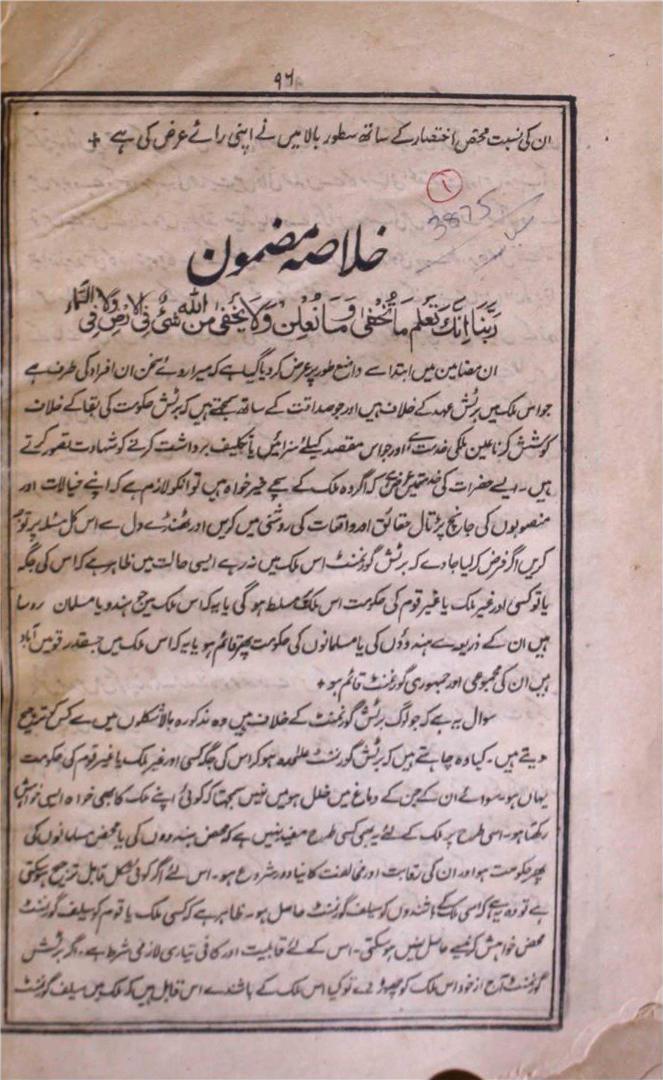 ۹۶
ان کی نسبت محض اختصار کے ساتھ سطور بالا میں نے اپنی رائے عرض کی ہے +
۱
3875
خلاصہ مضمون
رَبَّنَا اِنَّكَ تَعْلَمُ مَا نُخْفِیْ وَمَا نُعْلِنُ وَمَا یَخْفٰی عَلَی اللّٰهِ مِنْ شَیْءٍ فِی الْاَرْضِ وَلَا فِی السَّمَاءِ
ان مضامین میں ابتدا سے واضع طور پر عرض کر دیا گیا ہے کہ میرا روئے سخن ان افراد کی طرف ہے
جو اس ملک میں برٹش عہد کے خلاف ہیں اور جو صداقت کے ساتھ سمجھتے ہیں کہ برٹش حکومت کی بقا کے خلاف
کوشش کرنا عین ملکی خدمت ہے اور جو اس مقصد کیلئے سزائیں یا تکلیف برداشت کرنے کو شہادت تصور کرتے
ہیں۔ ایسے حضرات کی خدمت میں عرض ہے کہ اگر وہ ملک کے سچے خیر خواہ ہیں تو انکو لازم ہے کہ اپنے خیالات اور
منصوبوں کی جانچ پڑتال حقائق اور واقعات کی روشنی میں کریں اور ٹھنڈے دل سے اس کل مسئلہ پر توجہ
کریں اگر فرض کر لیا جاوے کہ برٹش گورنمنٹ اس ملک میں نہ رہے ایسی حالت میں ظاہر ہے کہ اس کی جگہ
یا تو کسی اور غیر ملک یا غیر قوم کی حکومت اس ملک پر مسلط ہو گی یا یہ کہ اس ملک میں جو ہندو یا مسلمان روسا
ہیں ان کے ذریعہ سے ہندوؤں کی یا مسلمانوں کی حکومت پھر قائم ہو یا یہ کہ اس ملک میں جسقدر قومیں آباد
ہیں ان کی مجموعی اور جمہوری گورنمنٹ قائم ہو +
سوال یہ ہے کہ جو لوگ برٹش گورنمنٹ کے خلاف ہیں وہ مذکورہ بالا شکلوں میں سے کس کو ترجیح
دیتے ہیں۔ کیا وہ چاہتے ہیں کہ برٹش گورنمنٹ علٰحدہ ہو کر اس کی جگہ کسی اور غیر ملک یا غیر قوم کی حکومت
یہاں ہو۔ سوائے ان کے جن کے دماغ میں خلل ہو میں نہیں سمجھتا کہ کوئی اپنے ملک کا بھی خواہ ایسی خواہش
رکھتا ہو۔ اسی طرح پر ملک کے لئے یہ بھی کسی طرح مفید نہیں ہے کہ محض ہندوؤں کی یا محض مسلمانوں کی
پھر حکومت ہو اور ان کی رقابت اور مخالفت کا نیا دور شروع ہو۔ اس لئے اگر کوئی شکل قابل ترجیح ہو سکتی
ہے تو وہ یہ ہے کہ اسی ملک کے باشندوں کو سیلف گورنمنٹ حاصل ہو۔ ظاہر ہے کہ کسی ملک یا قوم کو سیلف گورنمنٹ
محض خواہش کرنے سے حاصل نہیں ہو سکتی۔ اس کے لئے قابلیت اور کافی تیاری لازمی شرط ہے۔ اگر برٹش
گورنمنٹ آج از خود اس ملک کو چھوڑ دے تو کیا اس ملک کے باشندے اس قابل ہیں کہ ملک میں سیلف گورنمنٹ